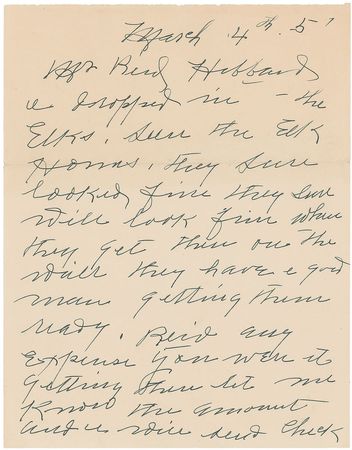 March 4th. 5'
Mr Reid Hibbard
I dropped in - the
Elks. Seen the Elk
Horns, they sure
looked fine they sure
will look fine when
they get them on the
wall they have a good
man getting them
ready. Reid any
Expense you were it
getting them let me
know the amount
and I will send check